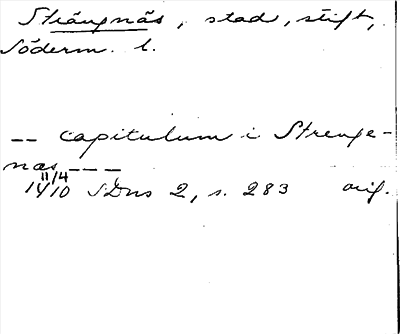 Strängnäs, stad, stift,
Söderm. l.
-- capitulum i Strenge-
nas ---
11/4
1410 SDns 2, s. 283 orig.